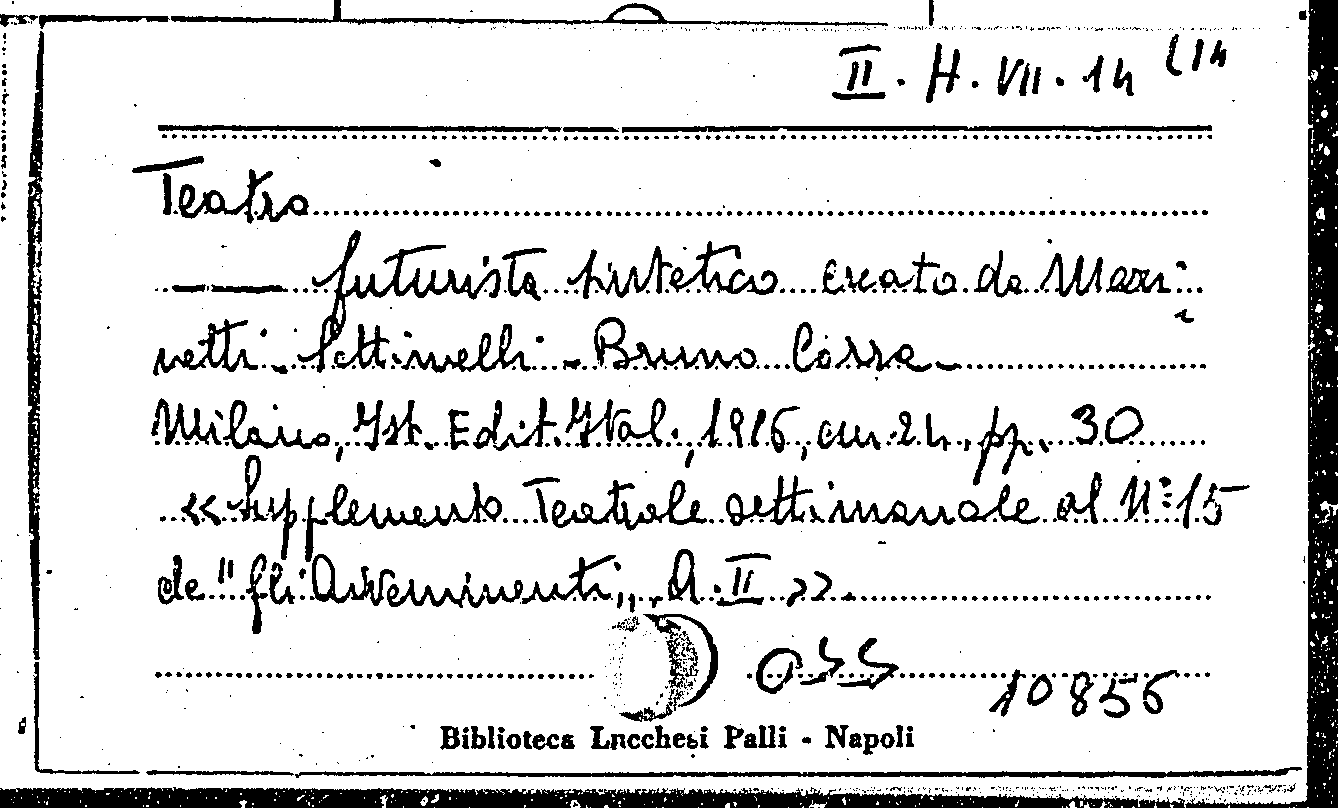 II. H. VII. 14 (14
Teatro
—— futurista sintetico creato da Mari-
netti - Settimelli - Bruno Corra -
Milano, Ist. Edit. Ital., 1916, cm. 24, pp. 30
«Supplemento Teatrale settimanale al N° 15
de "Gli Avvenimenti„, A. II».
10856
Biblioteca Lucchesi Palli - Napoli